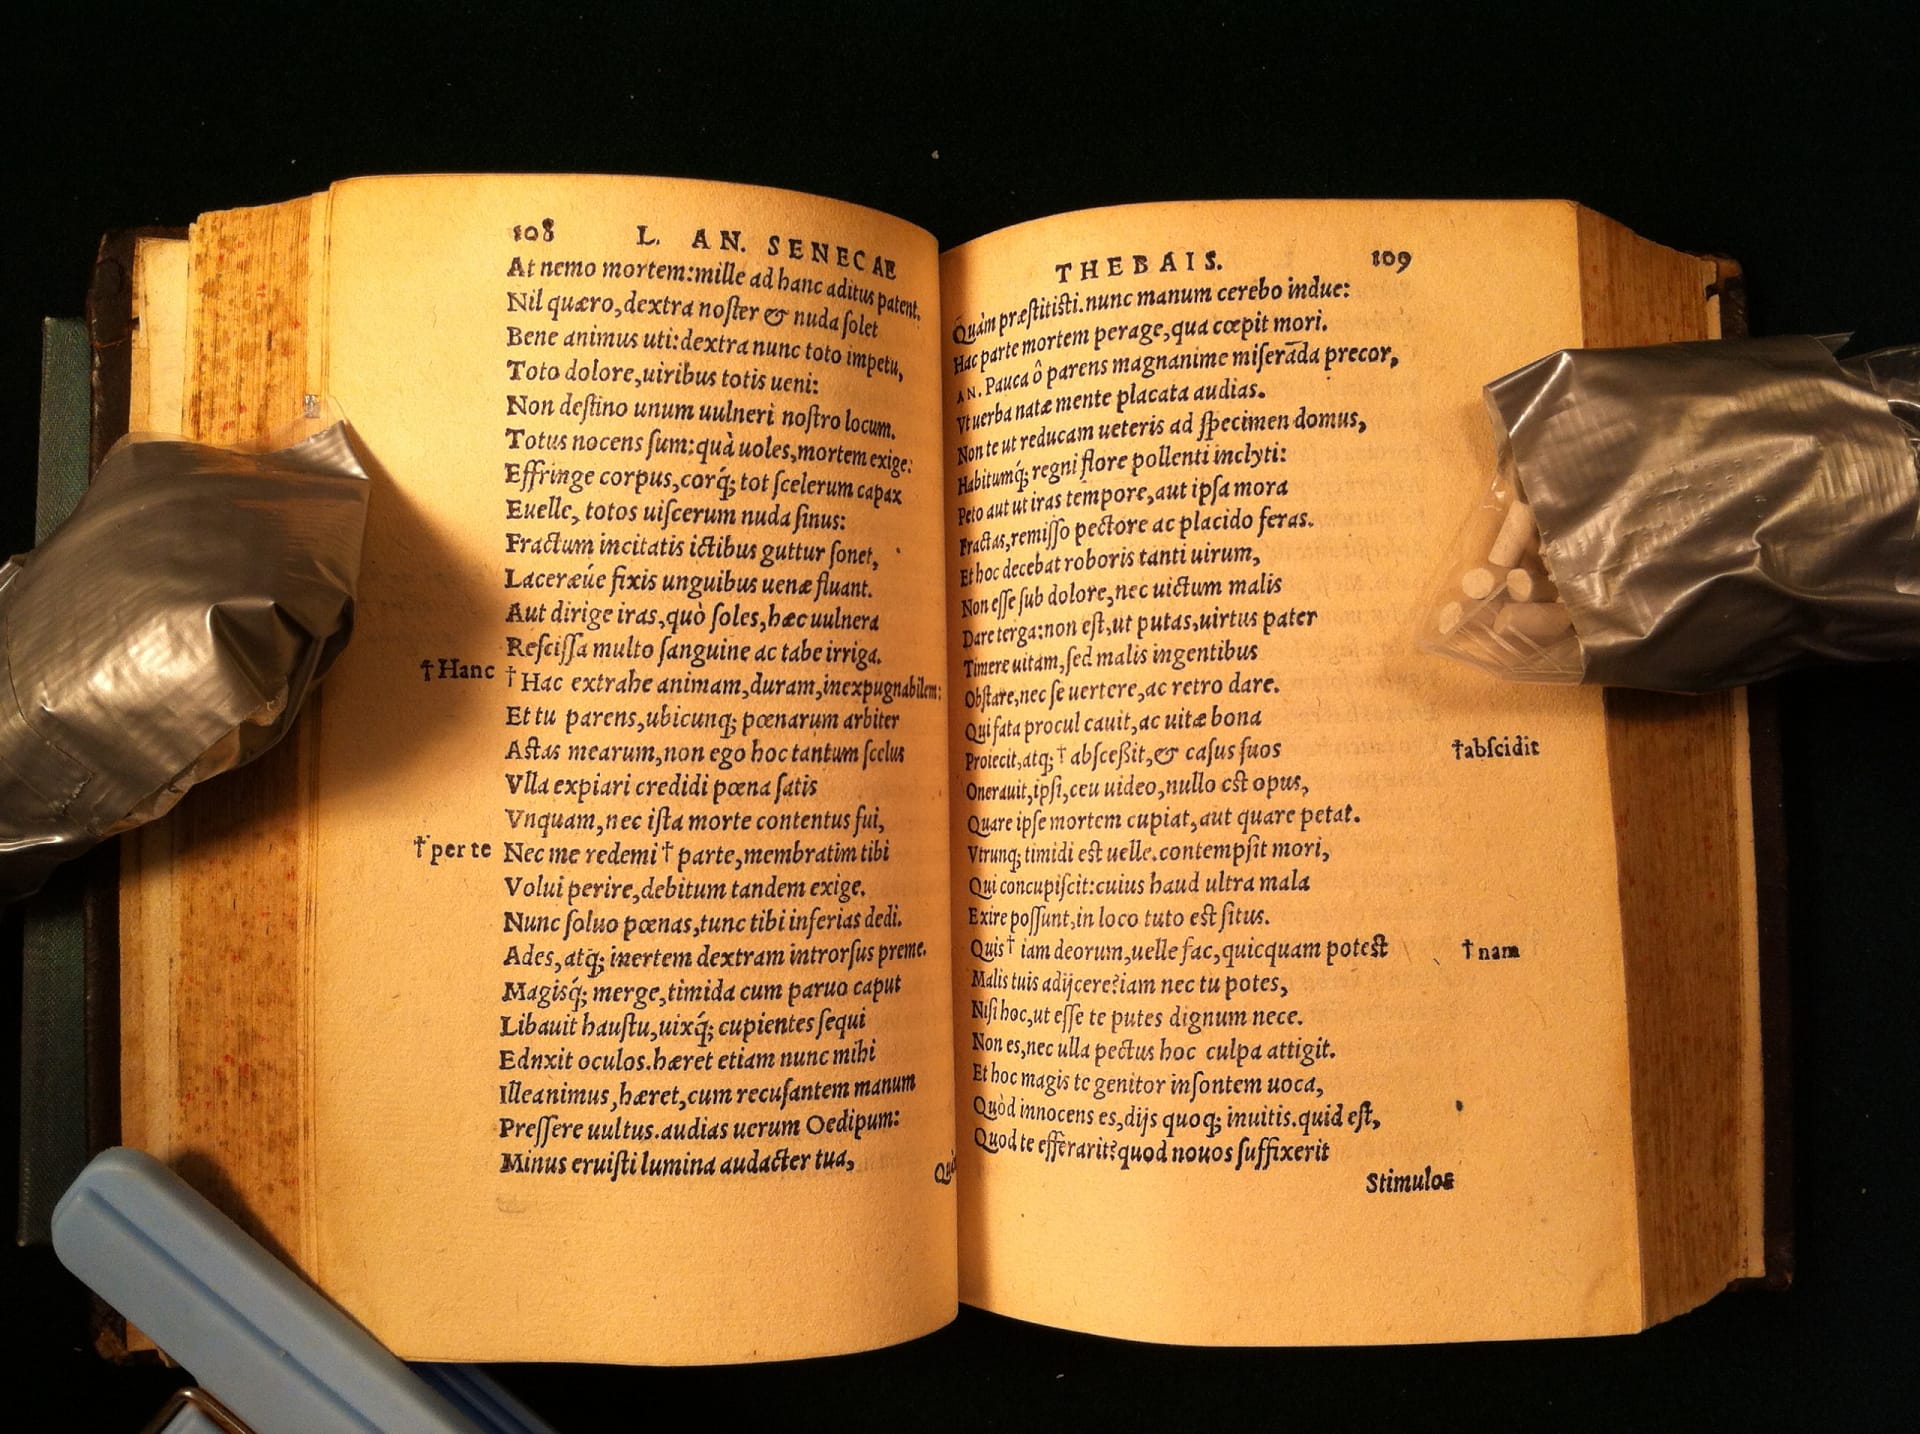 108 L. AN. SENECAE
At nemo mortem: mille ad hanc aditus patent.
Nil quæro, dextra noſter & nuda ſolet
Bene animus uti: dextra nunc toto impetu,
Toto dolore, uiribus totis ueni:
Non deſtino unum uulneri noſtro locum.
Totus nocens ſum: quà uoles, mortem exige:
Effringe corpus, corq́; tot ſcelerum capax
Euelle, totos uiſcerum nuda ſinus:
Fractum incitatis ictibus guttur ſonet,
Laceræúe fixis unguibus uenæ fluant.
Aut dirige iras, quò ſoles, hæc uulnera
Reſciſſa multo ſanguine ac tabe irriga.
†Hanc † Hac extrahe animam, duram, inexpugnabilem:
Et tu parens, ubicunq; pœnarum arbiter
Aſtas mearum, non ego hoc tantum ſcelus
Vlla expiari credidi pœna ſatis
Vnquam, nec iſta morte contentus fui,
†per te Nec me redemi † parte, membratim tibi
Volui perire, debitum tandem exige.
Nunc ſoluo pœnas, tunc tibi inferias dedi.
Ades, atq; inertem dextram introrſus preme.
Magisq́; merge, timida cum paruo caput
Libauit hauſtu, uixq́; cupientes ſequi
Ednxit oculos. hæret etiam nunc mihi
Ille animus, hæret, cum recuſantem manum
Preſſere uultus. audias uerum Oedipum:
Minus eruiſti lumina audacter tua,
THEBAIS. 109
Quàm præſtitiſti. nunc manum cerebo indue:
Hac parte mortem perage, qua cœpit mori.
AN. Pauca ô parens magnanime miſerāda precor,
Vt uerba natæ mente placata audias.
Non te ut reducam ueteris ad ſpecimen domus,
Habitumq́; regni flore pollenti inclyti:
Peto aut ut iras tempore, aut ipſa mora
Fractas, remiſſo pectore ac placido feras.
Et hoc decebat roboris tanti uirum,
Non eſſe ſub dolore, nec uictum malis
Dare terga: non eſt, ut putas, uirtus pater
Timere uitam, ſed malis ingentibus
Obſtare, nec ſe uertere, ac retro dare.
Qui fata procul cauit, ac uitæ bona
Proiecit, atq; † abſceßit, & caſus ſuos †abſcidit
Onerauit, ipſi, ceu uideo, nullo eſt opus,
Quare ipſe mortem cupiat, aut quare petat.
Vtrunq; timidi eſt uelle. contempſit mori,
Qui concupiſcit: cuius haud ultra mala
Exire poſſunt, in loco tuto eſt ſitus.
Quis † iam deorum, uelle fac, quicquam poteſt †nam
Malis tuis adijcere? iam nec tu potes,
Niſi hoc, ut eſſe te putes dignum nece.
Non es, nec ulla pectus hoc culpa attigit.
Et hoc magis te genitor inſontem uoca,
Quòd innocens es, dijs quoq; inuitis. quid eſt,
Quod te efferarit? quod nouos ſuffixerit
Stimulos